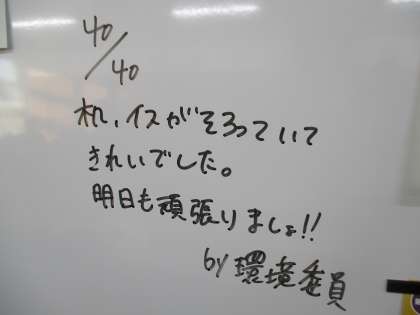 40/40
机、イスがそろっていて
きれいでした。
明日も頑張りましょ!!
by 環境委員